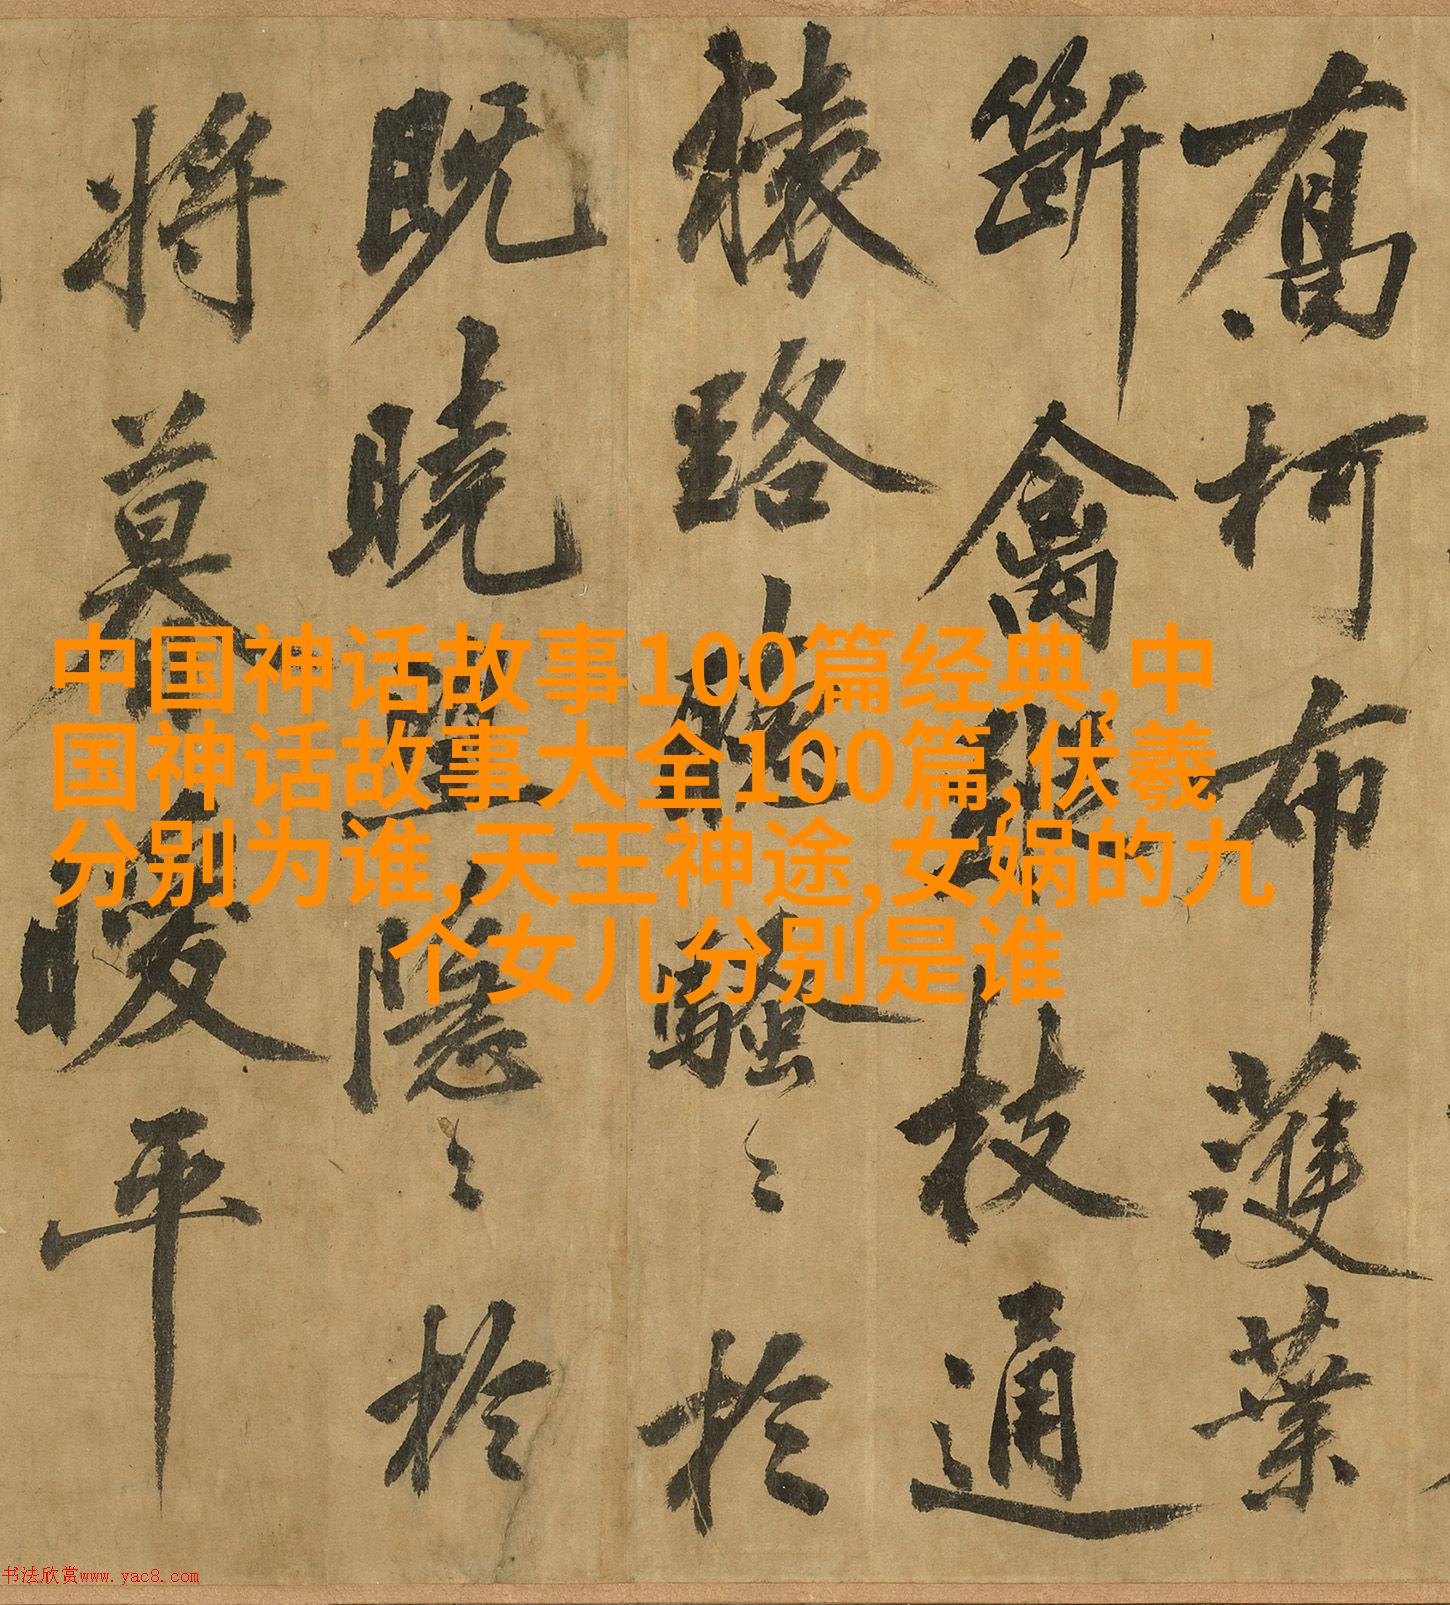 柯布護葉
斷禽枝通
猿路騷〻於
既曉隱〻於
將暖平
中国神话故事100篇经典,中
国神话故事大全100篇,伏羲
分别为谁,天王神途,女娲的九
个女儿分别是谁
书法欣赏www.yac8.com